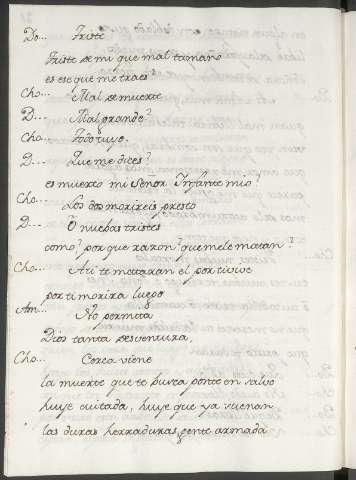 Do... Triste
Triste de mi que mal tamano
es ese que me traes?
Cho... Mal de muerte
D... Mal grande?
Cho... Todo tuyo.
D... Que me dices?
es muerto mi Señor Infante mio?
Cho... Los dos morireis presto
D... O nuebas tristes
como? por que razon? que me le matan?
Cho... A ti te mataran el por ti vive
por ti morira luego
Am... No permita
Dios tanta desventura,
Cho... Cerca viene
la muerte que te busca ponte en salvo
huye cuitada, huye que ya suenan
las duras herraduras gente armada